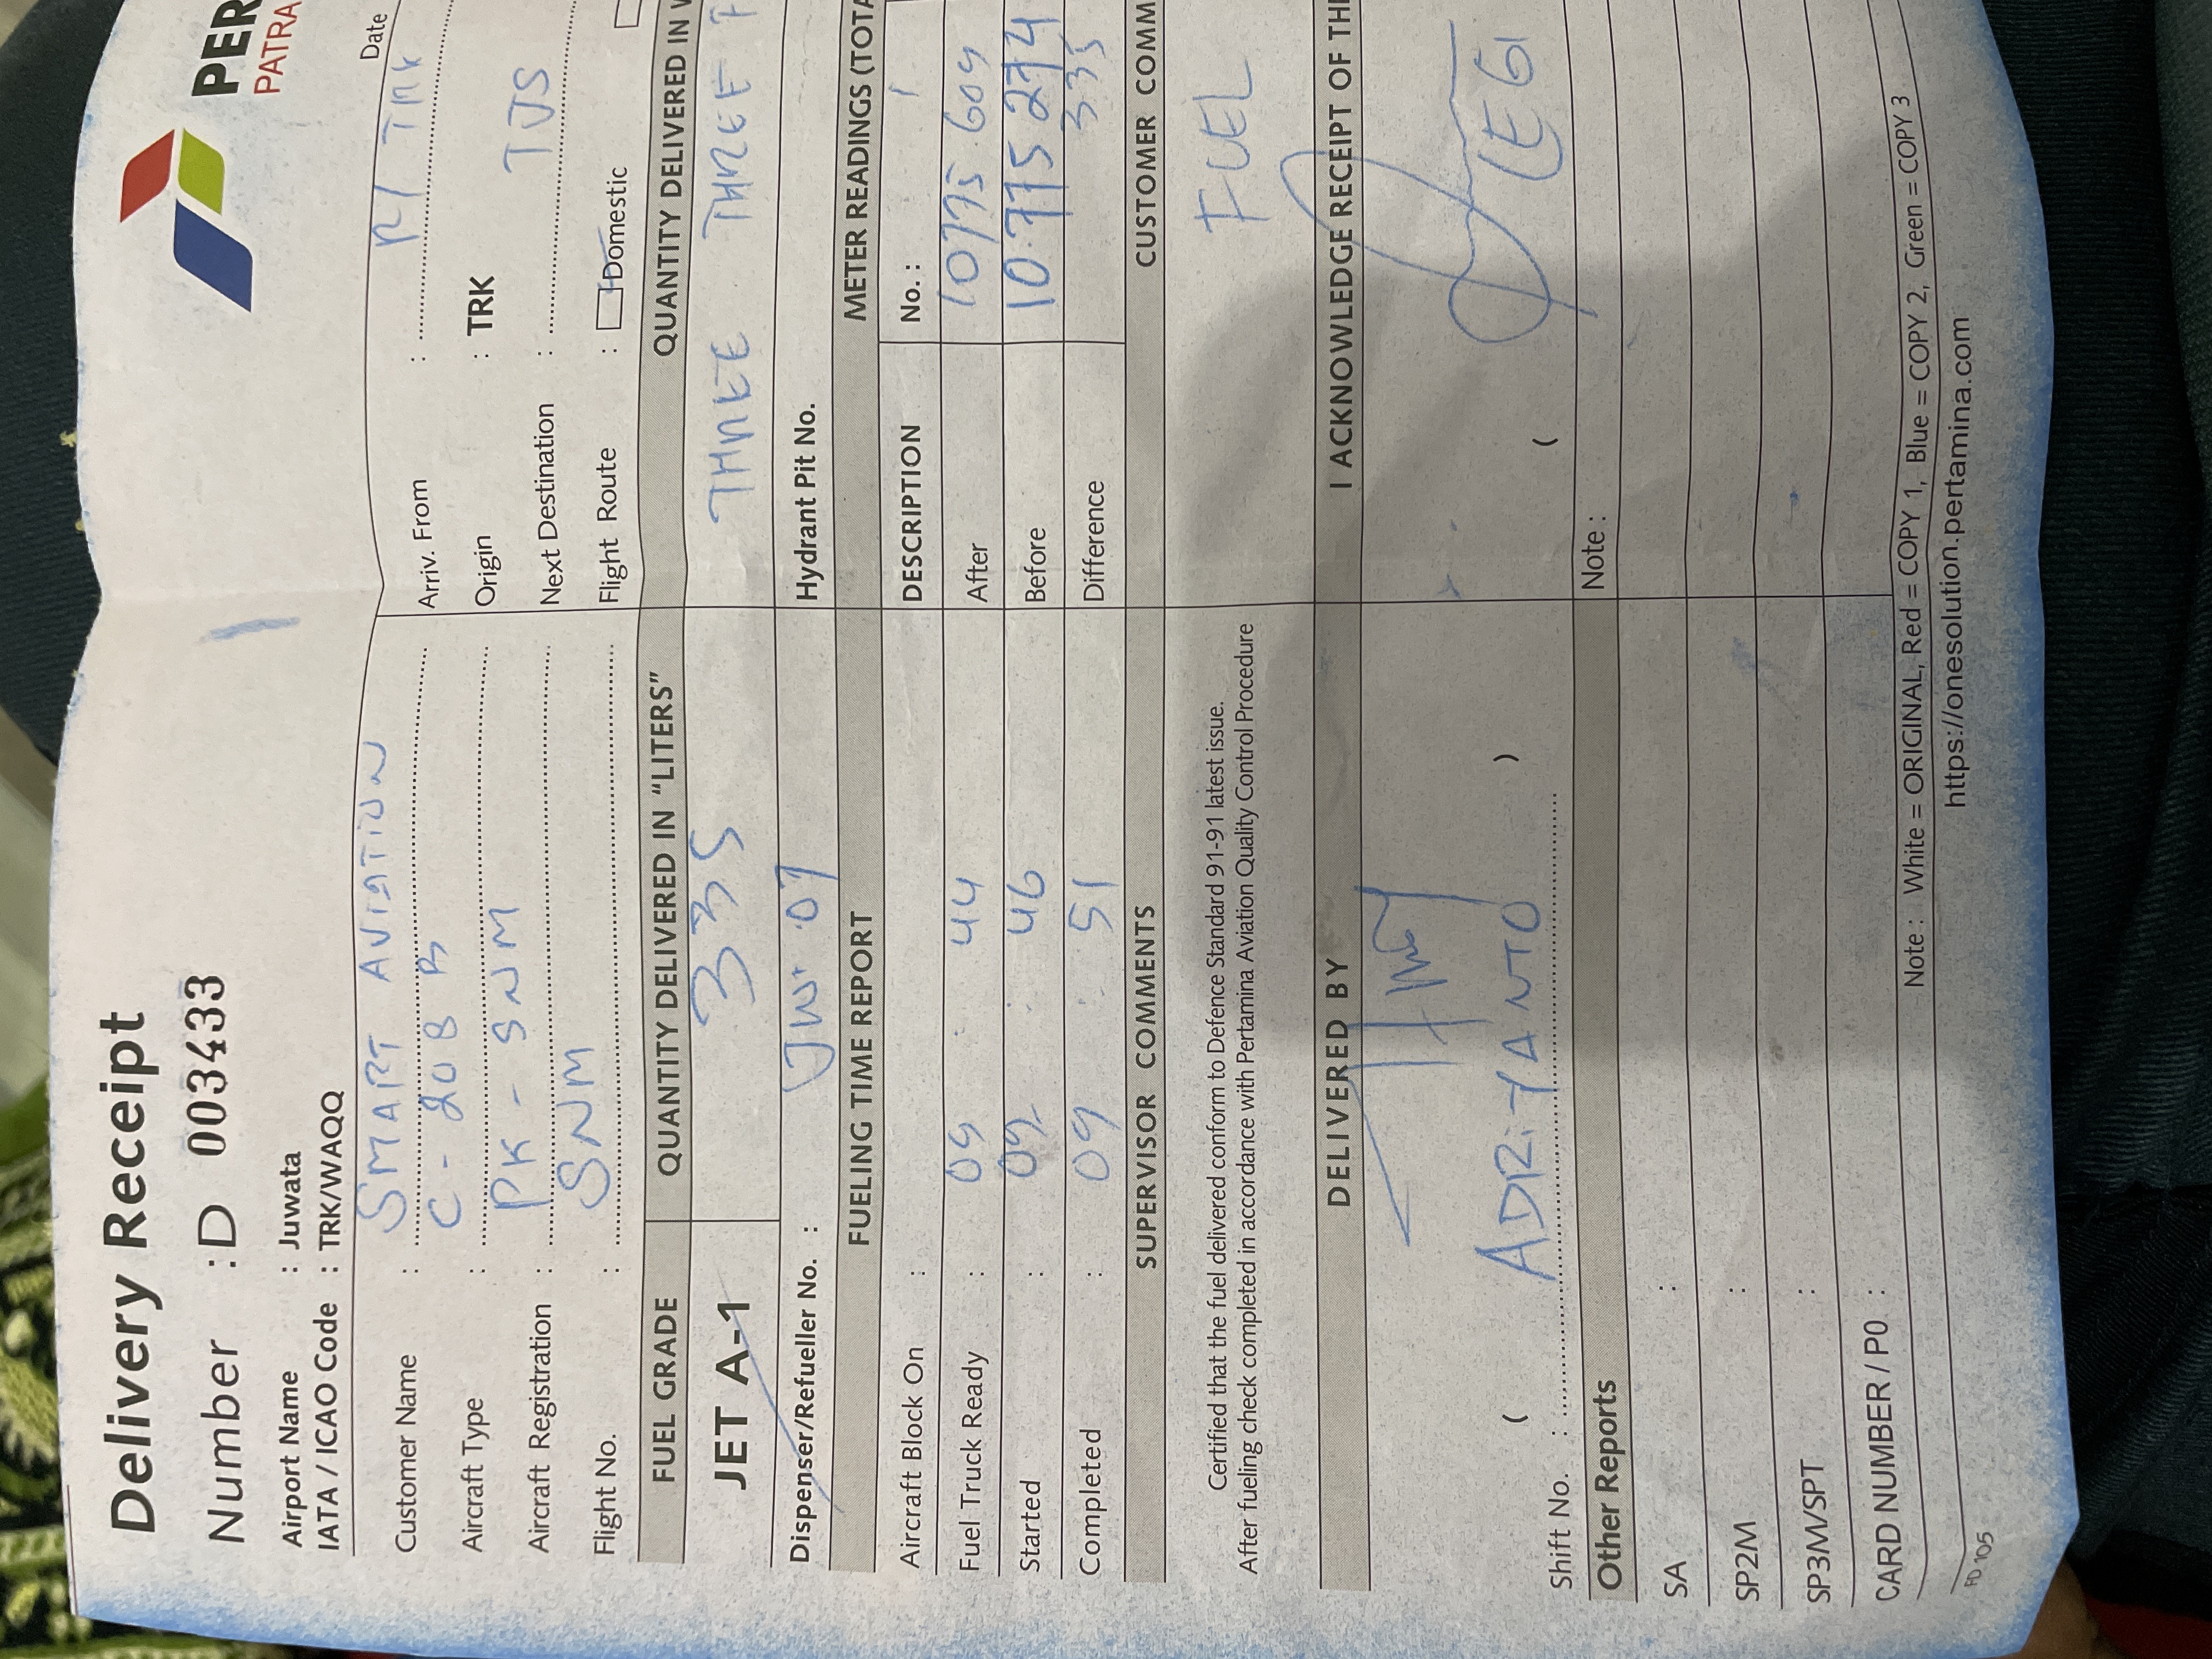 Delivery Receipt
PER
PATRA
Number : D 003433
Date
Airport Name : Juwata
IATA / ICAO Code : TRK/WAQQ
Customer Name : SMART AVIATION
Arriv. From : TRK
Aircraft Type : C - 208 B
Origin : TRK
Aircraft Registration : PK - SNM
Next Destination : TJS
Flight No. : SNM
Flight Route : Domestic
FUEL GRADE QUANTITY DELIVERED IN "LITERS" QUANTITY DELIVERED IN
JET A-1 335 THREE THREE
Dispenser/Refueller No. : JWT 07 Hydrant Pit No.
FUELING TIME REPORT METER READINGS (TOTA
Aircraft Block On : DESCRIPTION No. : 1
Fuel Truck Ready : 09 : 44 After 10775 609
Started : 09 : 46 Before 10.775 274
Completed : 09 : 51 Difference 335
SUPERVISOR COMMENTS CUSTOMER COMM
Certified that the fuel delivered conform to Defence Standard 91-91 latest issue.
After fueling check completed in accordance with Pertamina Aviation Quality Control Procedure
FUEL
DELIVERED BY I ACKNOWLEDGE RECEIPT OF TH
( ADRIYANTO ) ( EGI
Shift No. :
Other Reports Note :
SA :
SP2M :
SP3M/SPT :
CARD NUMBER / P0 :
Note : White = ORIGINAL, Red = COPY 1, Blue = COPY 2, Green = COPY 3
FD 105
https://onesolution.pertamina.com